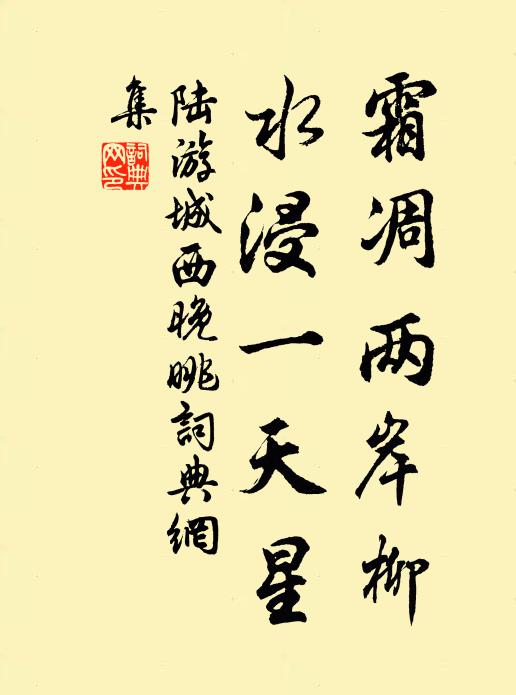 霜凋两岸柳
水浸一天星
陆游城西晚眺詞典網
集
詞典
网印